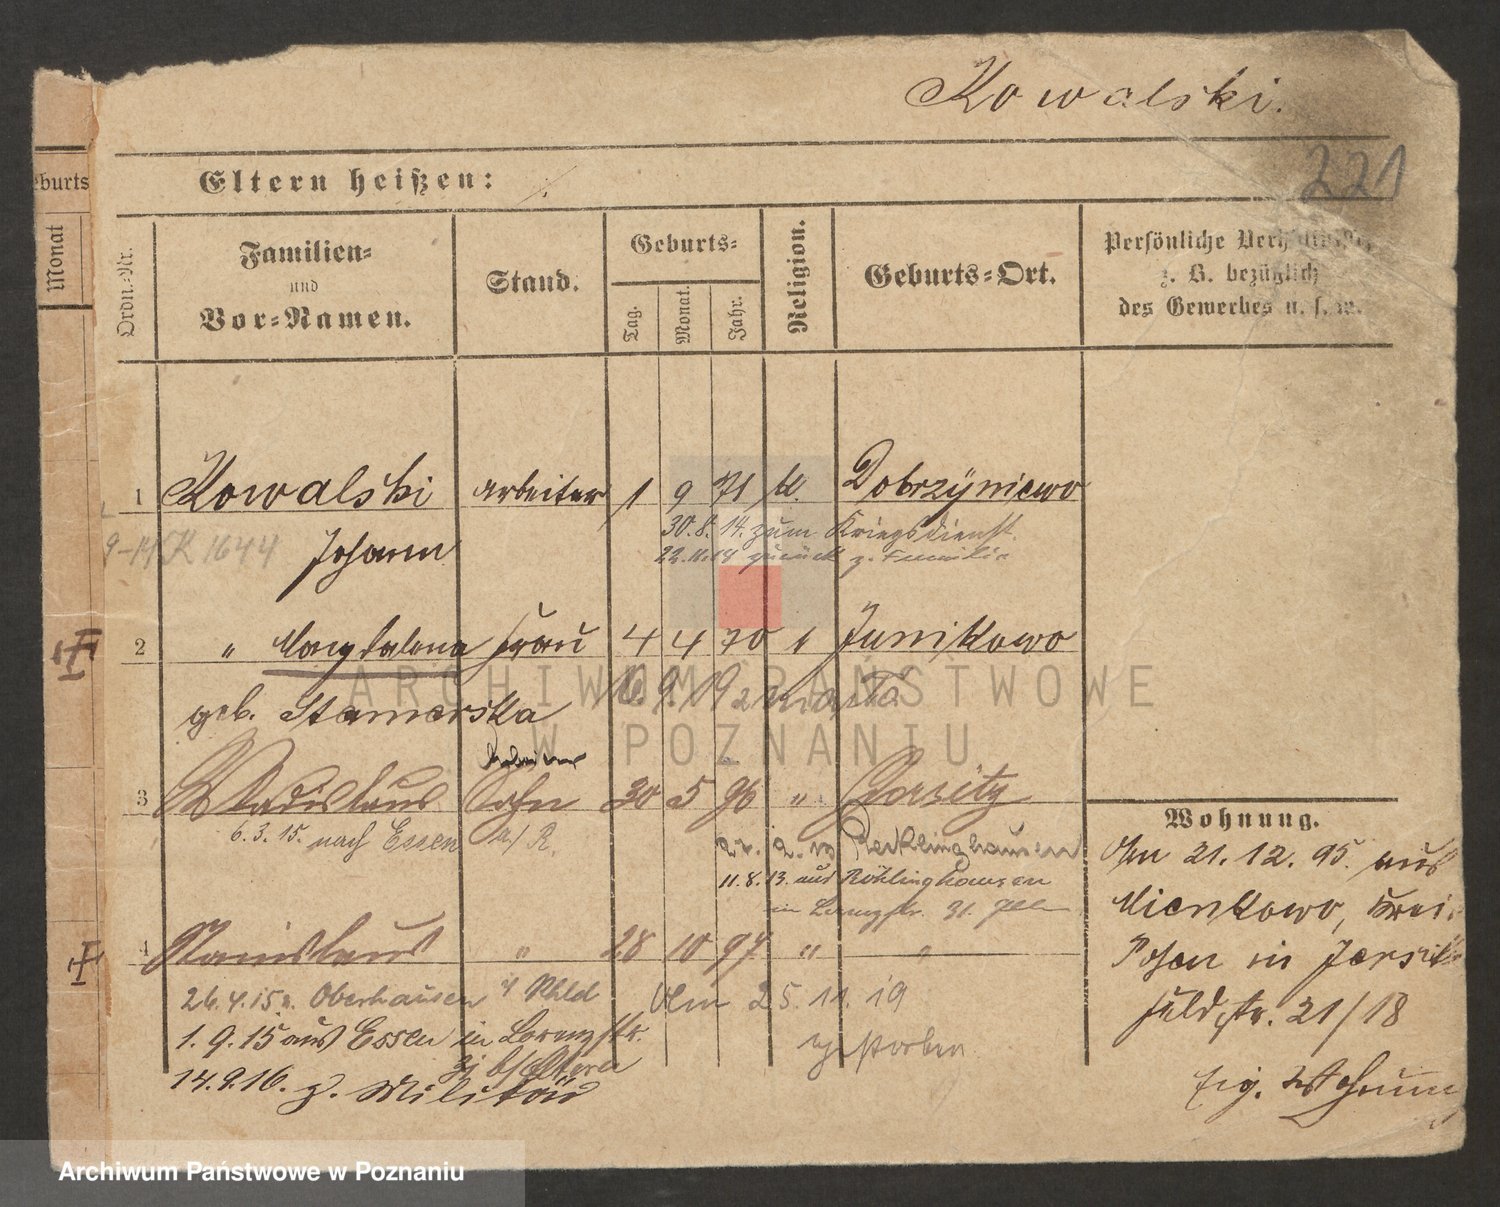 Kowalski.
221
Eltern heißen:
eburts
Monat
Ordn.-Nr.
Familien-
und
Vor-Namen.
Stand.
Geburts-
Tag.
Monat.
Jahr.
Religion.
Geburts-Ort.
Persönliche Verhältnisse,
z. B. bezüglich
des Gewerbes u. s. w.
1 Kowalski Arbeiter 1 9 71 kl. Dobrzyniewo
30.8.14. zum Kriegsdienst.
22.11.14 zurück z. Familie
9-14 K 1644 Johann
2 " Magdalena Frau 4 4 70 " Junikowo
geb. Stamerska
16.9.19
Arbeiter
3 Wladislaus Sohn 30 5 96 " Gorsitz
6.3.15. nach Essen a/R.
27. 2. 13 Recklinghausen
11.8.13. aus Röhlinghausen
in Lorenzstr. 31.
4 Stanislaus " 28 10 97 " "
26.4.15 n. Oberhausen i/ Rhld
Am 25.11.19
gestorben
1.9.15 aus Essen in Lorenzstr.
b/ Eltern
14.9.16. z. Militär
Wohnung.
Am 21.12.95. aus
Mienkowo, Kreis
Posen in Jersitz
Feldstr. 21/18
Eig. Wohnung
ARCHIWUM PAŃSTWOWE
W POZNANIU
Archiwum Państwowe w Poznaniu